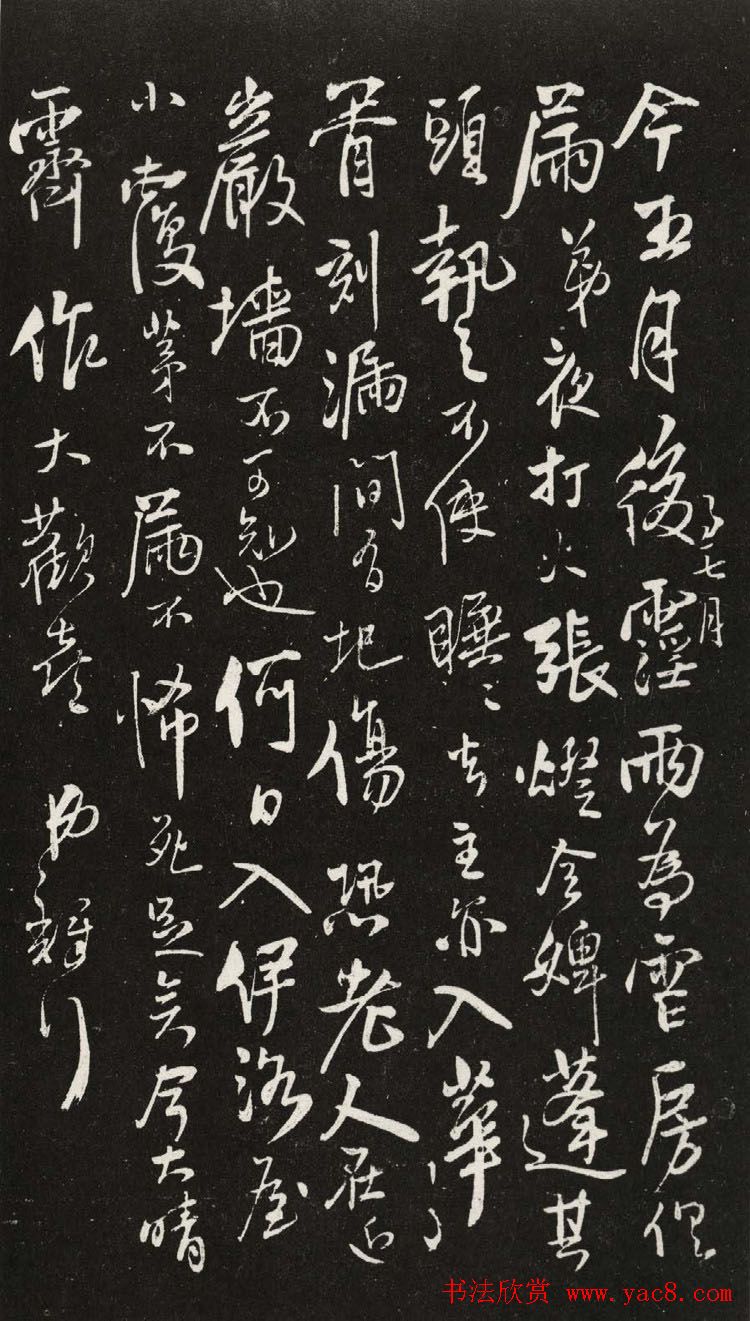 今五月後霪雨為雪房俱
了七月
漏 弟夜打火張燈令婢蓬其
頭執之不使睡 去主亦入華
胥刻漏間有圮傷恐老人在
巖墻不可知也何日入伊洛
小廈茅不漏不怖死足矣今大晴
霽作大歡喜
书法欣赏 www.yac8.com